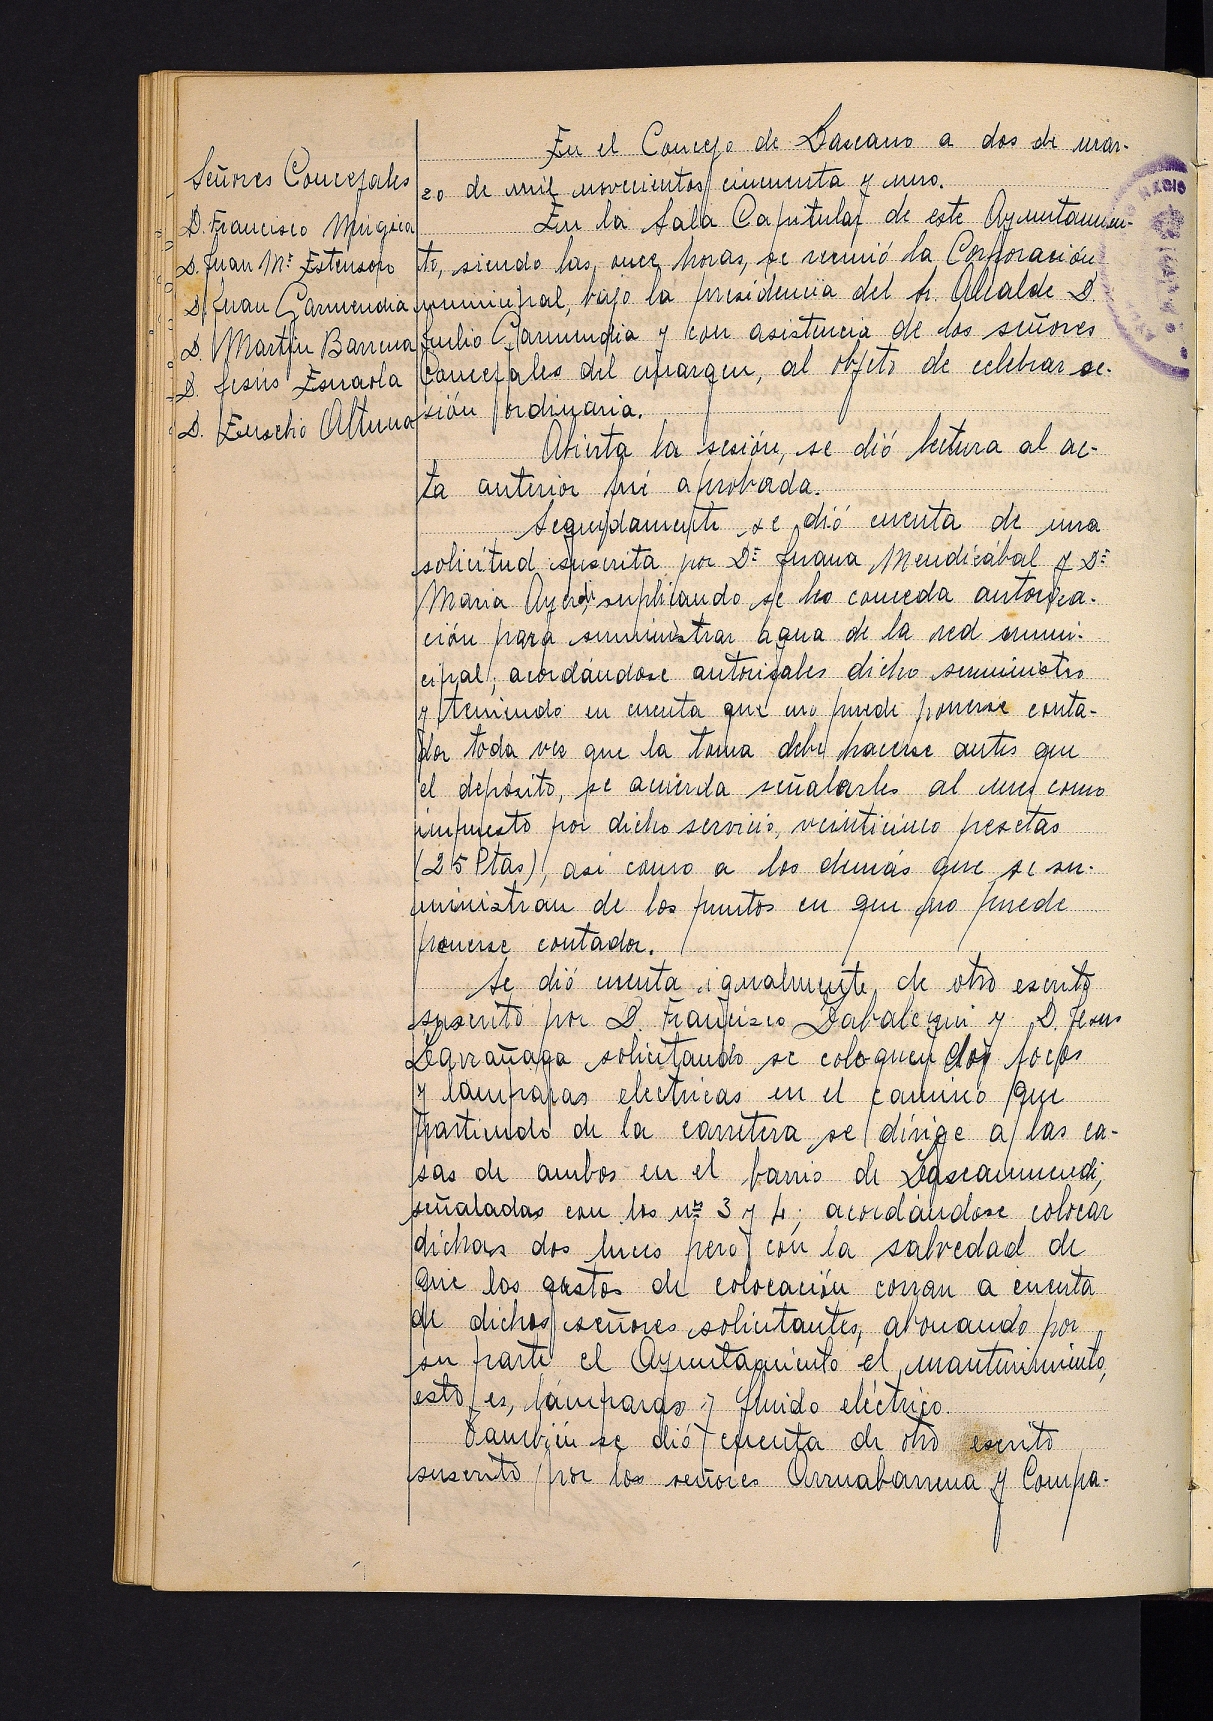 Señores Concejales
D. Francisco Múgica
D. Juan Mª Estensoro
D. Juan Garmendia
D. Martín Barrena
D. Jesús Esnaola
D. Eusebio Altuna
En el Concejo de Lazcano a dos de mar-
zo de mil novecientos cincuenta y uno.
En la Sala Capitular de este Ayuntamien-
to, siendo las once horas, se reunió la Corporación
municipal, bajo la presidencia del Sr. Alcalde D.
Julio Garmendia y con asistencia de los señores
Concejales del margen, al objeto de celebrar se-
sión ordinaria.
Abierta la sesión, se dió lectura al ac-
ta anterior fué aprobada.
Seguidamente se dió cuenta de una
solicitud suscrita por Dª Juana Mendizábal y Dª
Maria suplicando se les conceda autoriza-
ción para suministrar agua de la red muni-
cipal; acordándose autorizales dicho suministro
y teniendo en cuenta que no puede ponerse conta-
dor toda vez que la toma debe hacerse antes que
el depósito, se acuerda señalarles al mes como
impuesto por dicho servicio, veinticinco pesetas
(25 Ptas), asi como a los demás que se su-
ministran de los puntos en que no puede
ponerse contador.
Se dió cuenta igualmente de otro escrito
suscrito por D. Francisco Zabalegui y D. Jesus
Legarzañaga solicitando se coloquen dos focos
y lámparas electricas en el camino que
partiendo de la carretera se dirige a las ca-
sas de ambos en el barrio de Lazcaumendi,
señaladas con los nos 3 y 4; acordándose colocar
dichas dos luces pero con la salvedad de
que los gastos de colocación corran a cuenta
de dichos señores solicitantes, abonando por
su parte el Ayuntamiento el mantenimiento,
esto es, lámparas y fluido eléctrico.
Tambien se dió cuenta de otro escrito
suscrito por los señores Arruabarrena y Compa-